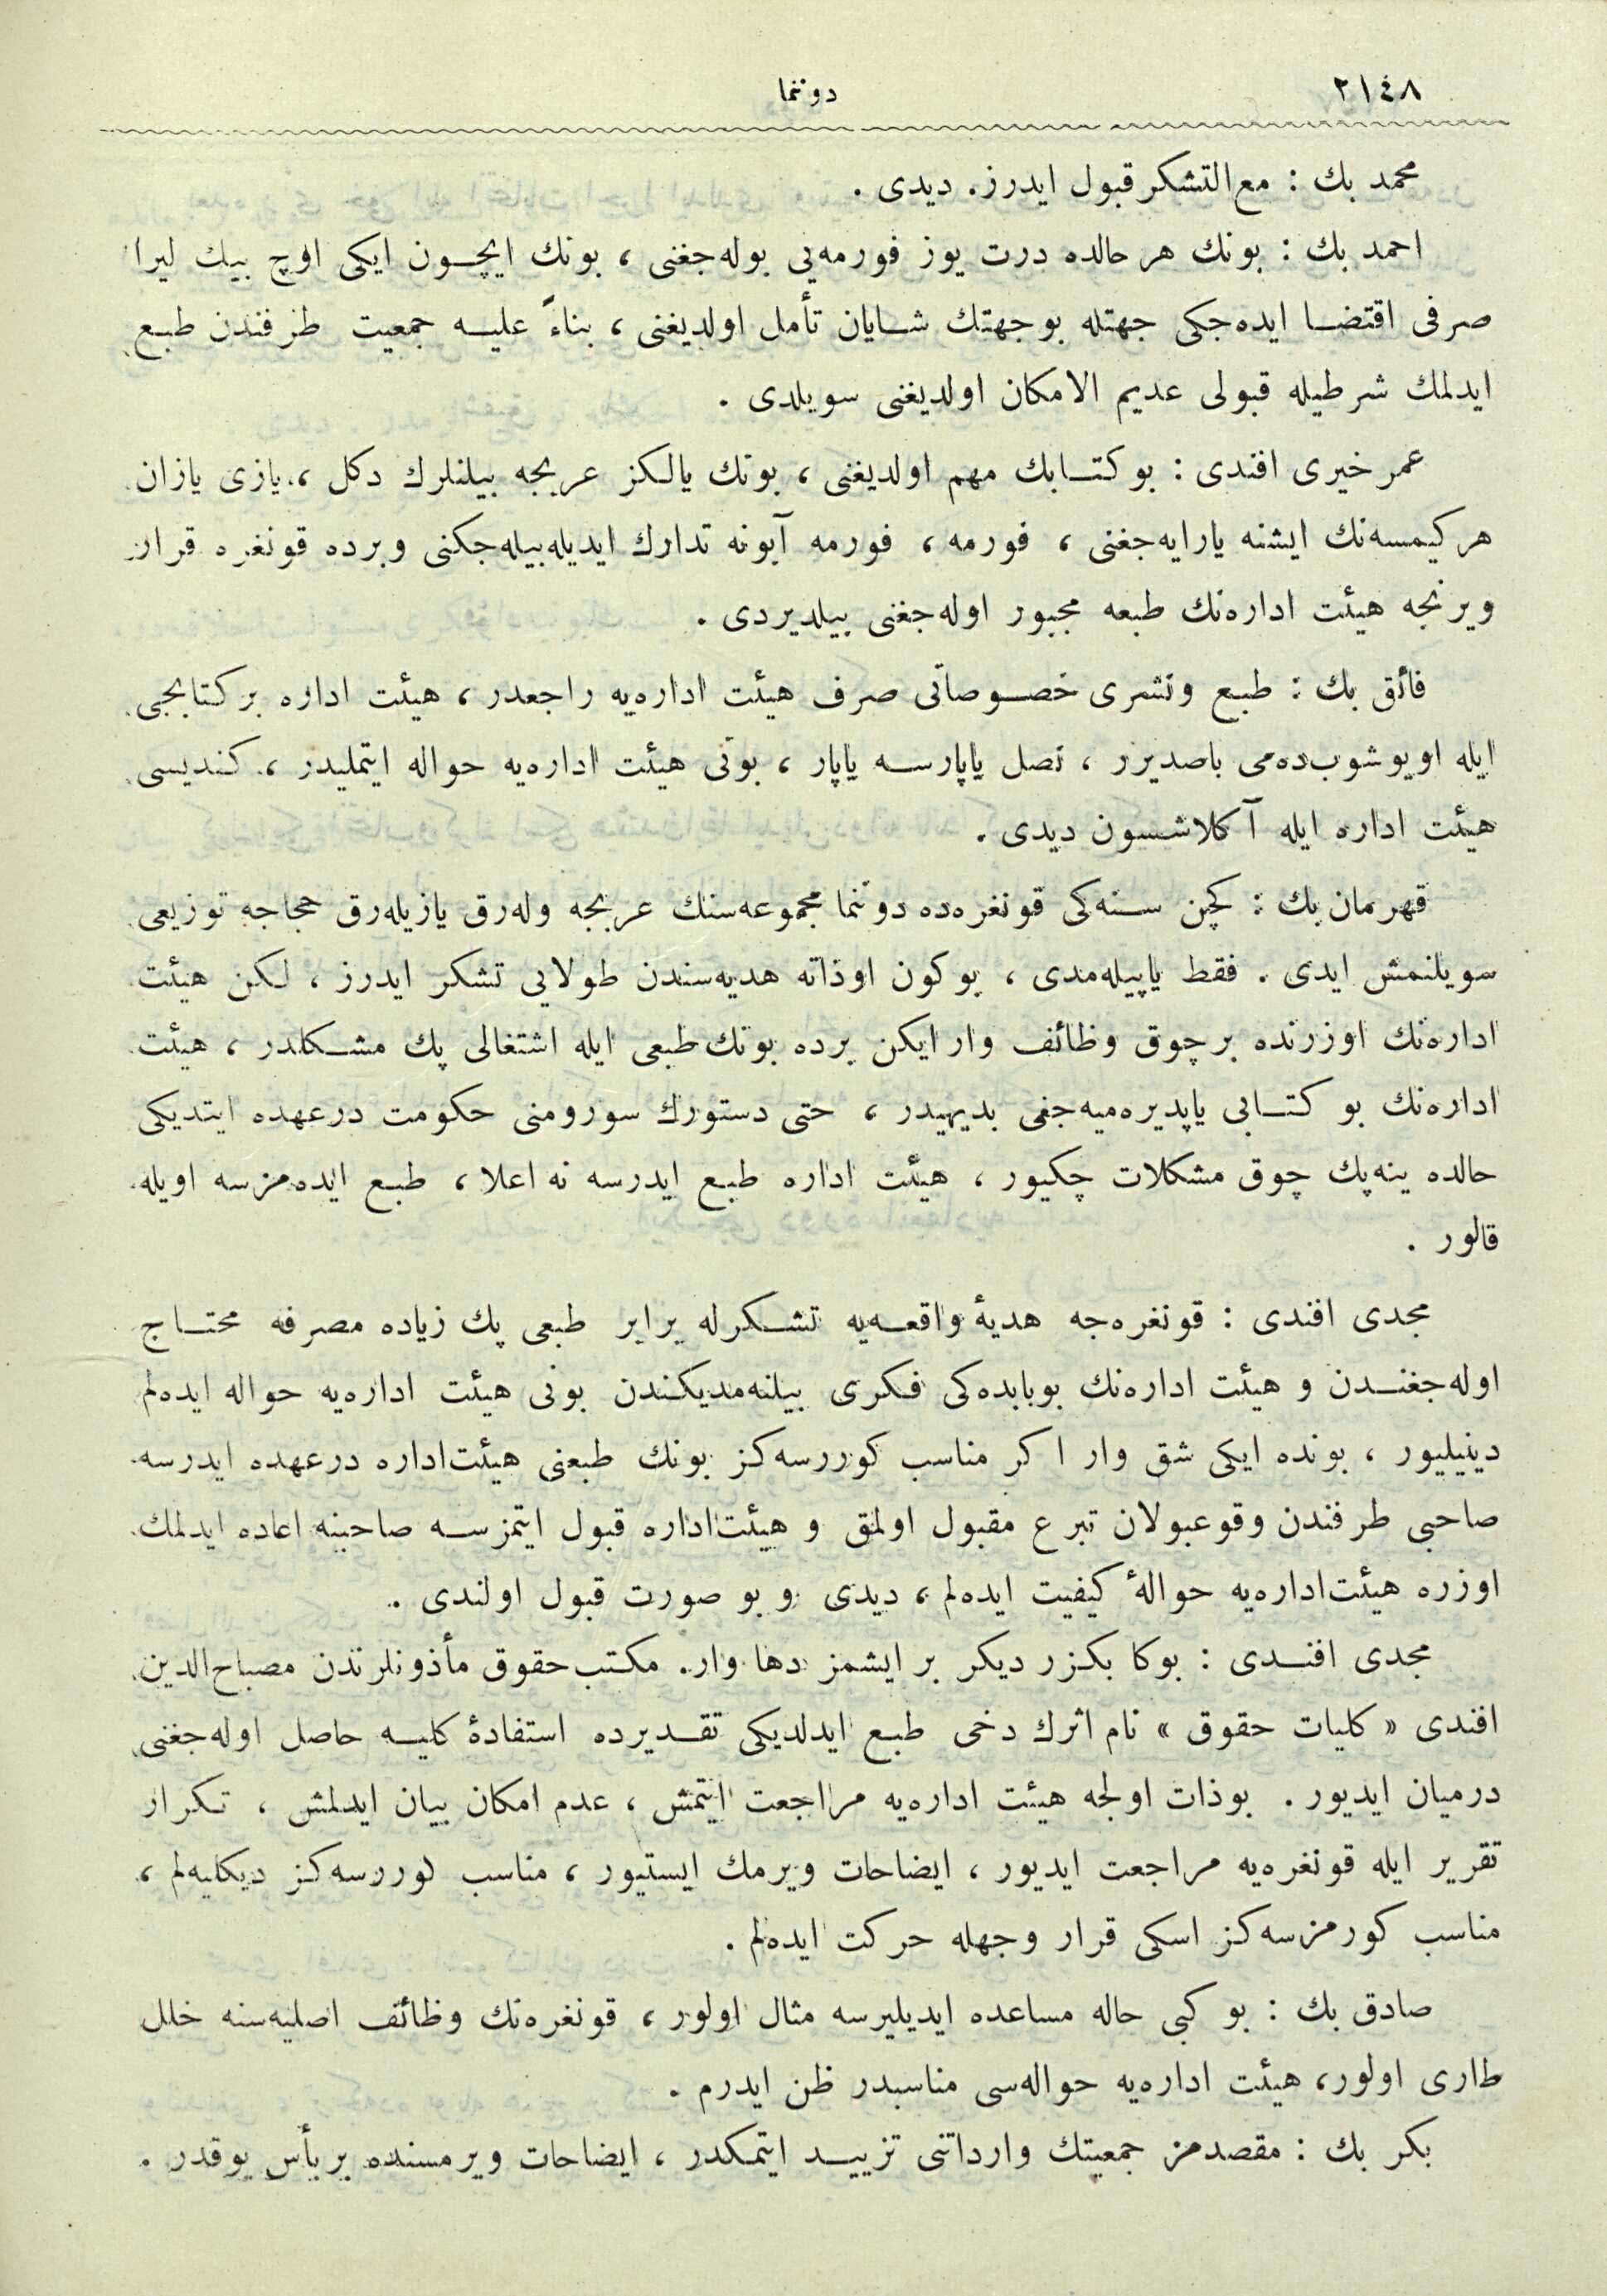 ٢١٤٨
دوننما
محمد بك : مع‌التشكر قبول ايدرز. ديدى .
احمد بك : بونك هر حالده درت يوز فورمه‌يى بوله‌جغنى ، بونك ايچون ايكى اوچ بيك ليرا
صرفى اقتضا ايده‌جكى جهتله بو جهتك شايان تأمل اولديغنى ، بناءً عليه جمعيت طرفندن طبع
ايدلمك شرطيله قبولى عديم الامكان اولديغنى سويلدى .
عمر خيرى افندى : بو كتابك مهم اولديغنى ، بونك يالكز عربجه بيلنلرك دكل ، يازى يازان
هر كيمسه‌نك ايشنه يارايه‌جغنى ، فورمه ، فورمه آبونه تدارك ايديله‌بيله‌جكنى وبرده قونغره قرار
ويرنجه هيئت اداره‌نك طبعه مجبور اوله‌جغنى بيلديردى .
فائق بك : طبع ونشرى خصوصاتى صرف هيئت اداره‌يه راجعدر ، هيئت اداره بر كتابجى
ايله اويوشوب‌ده‌مى باصديرر ، نصل ياپارسه ياپار ، بونى هيئت اداره‌يه حواله ايتمليدر ، كنديسى
هيئت اداره ايله آكلاشسون ديدى .
قهرمان بك : كچن سنه‌كى قونغره‌ده دوننما مجموعه‌سنك عربجه وله‌رق يازيله‌رق حجاجه توزيعى
سويلنمش ايدى . فقط ياپيله‌مدى ، بو كون او ذاته هديه‌سندن طولايى تشكر ايدرز ، لكن هيئت
اداره‌نك اوزرنده بر چوق وظائف وار ايكن برده بونك طبعى ايله اشتغالى پك مشكلدر ، هيئت
اداره‌نك بو كتابى ياپديره‌ميه‌جغى بديهيدر ، حتى دستورك سورومنى حكومت درعهده ايتديكى
حالده ينه پك چوق مشكلات چكيور ، هيئت اداره طبع ايدرسه نه اعلا ، طبع ايده‌مزسه اويله
قالور .
مجدى افندى : قونغره‌جه هديهٔ واقعه‌يه تشكرله برابر طبعى پك زياده مصرفه محتاج
اوله‌جغندن و هيئت اداره‌نك بوبابده‌كى فكرى بيلنه‌مديكندن بونى هيئت اداره‌يه حواله ايده‌لم
دينيليور ، بونده ايكى شق وار ا كر مناسب كوررسه‌كز بونك طبعنى هيئت‌اداره درعهده ايدرسه
صاحبى طرفندن وقوعبولان تبرع مقبول اولمق و هيئت‌اداره قبول ايتمزسه صاحبنه اعاده ايدلمك
اوزره هيئت‌اداره‌يه حوالهٔ كيفيت ايده‌لم ، ديدى و بو صورت قبول اولندى .
مجدى افندى : بوكا بكزر ديكر بر ايشمز دها وار. مكتب حقوق مأذونلرندن مصباح‌الدين
افندى « كليات حقوق » نام اثرك دخى طبع ايدلديكى تقديرده استفادهٔ كليه حاصل اوله‌جغنى
درميان ايديور . بوذات اولجه هيئت اداره‌يه مراجعت ايتمش ، عدم امكان بيان ايدلمش ، تكرار
تقرير ايله قونغره‌يه مراجعت ايديور ، ايضاحات ويرمك ايستيور ، مناسب كوررسه‌كز ديكليه‌لم ،
مناسب كورمزسه‌كز اسكى قرار وجهله حركت ايده‌لم .
صادق بك : بو كبى حاله مساعده ايديليرسه مثال اولور ، قونغره‌نك وظائف اصليه‌سنه خلل
طارى اولور، هيئت اداره‌يه حواله‌سى مناسبدر ظن ايدرم .
بكر بك : مقصدمز جمعيتك وارداتنى تزييد ايتمكدر ، ايضاحات ويرمسنده بر بأس يوقدر .